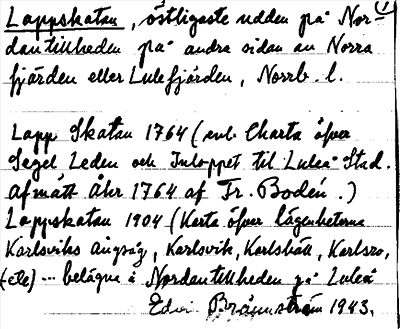 Lappskatan, östligaste udden på Nor- 1
dantillheden på andra sidan av Norra
fjärden eller Lulefjärden, Norrb. l.
Lapp Skatan 1764 (enl. Charta öfver
Segel Leden och Inloppet til Luleå Stad.
Afmätt Åhr 1764 af Fr. Bodén.)
Lappskatan 1904 (Karta öfver lägenheterna
Karlsviks ångsåg, Karlsvik, Karlshäll, Karlsro,
(etc) ... belägna i Nordantillheden på Luleå
Edvin Brännström 1943.